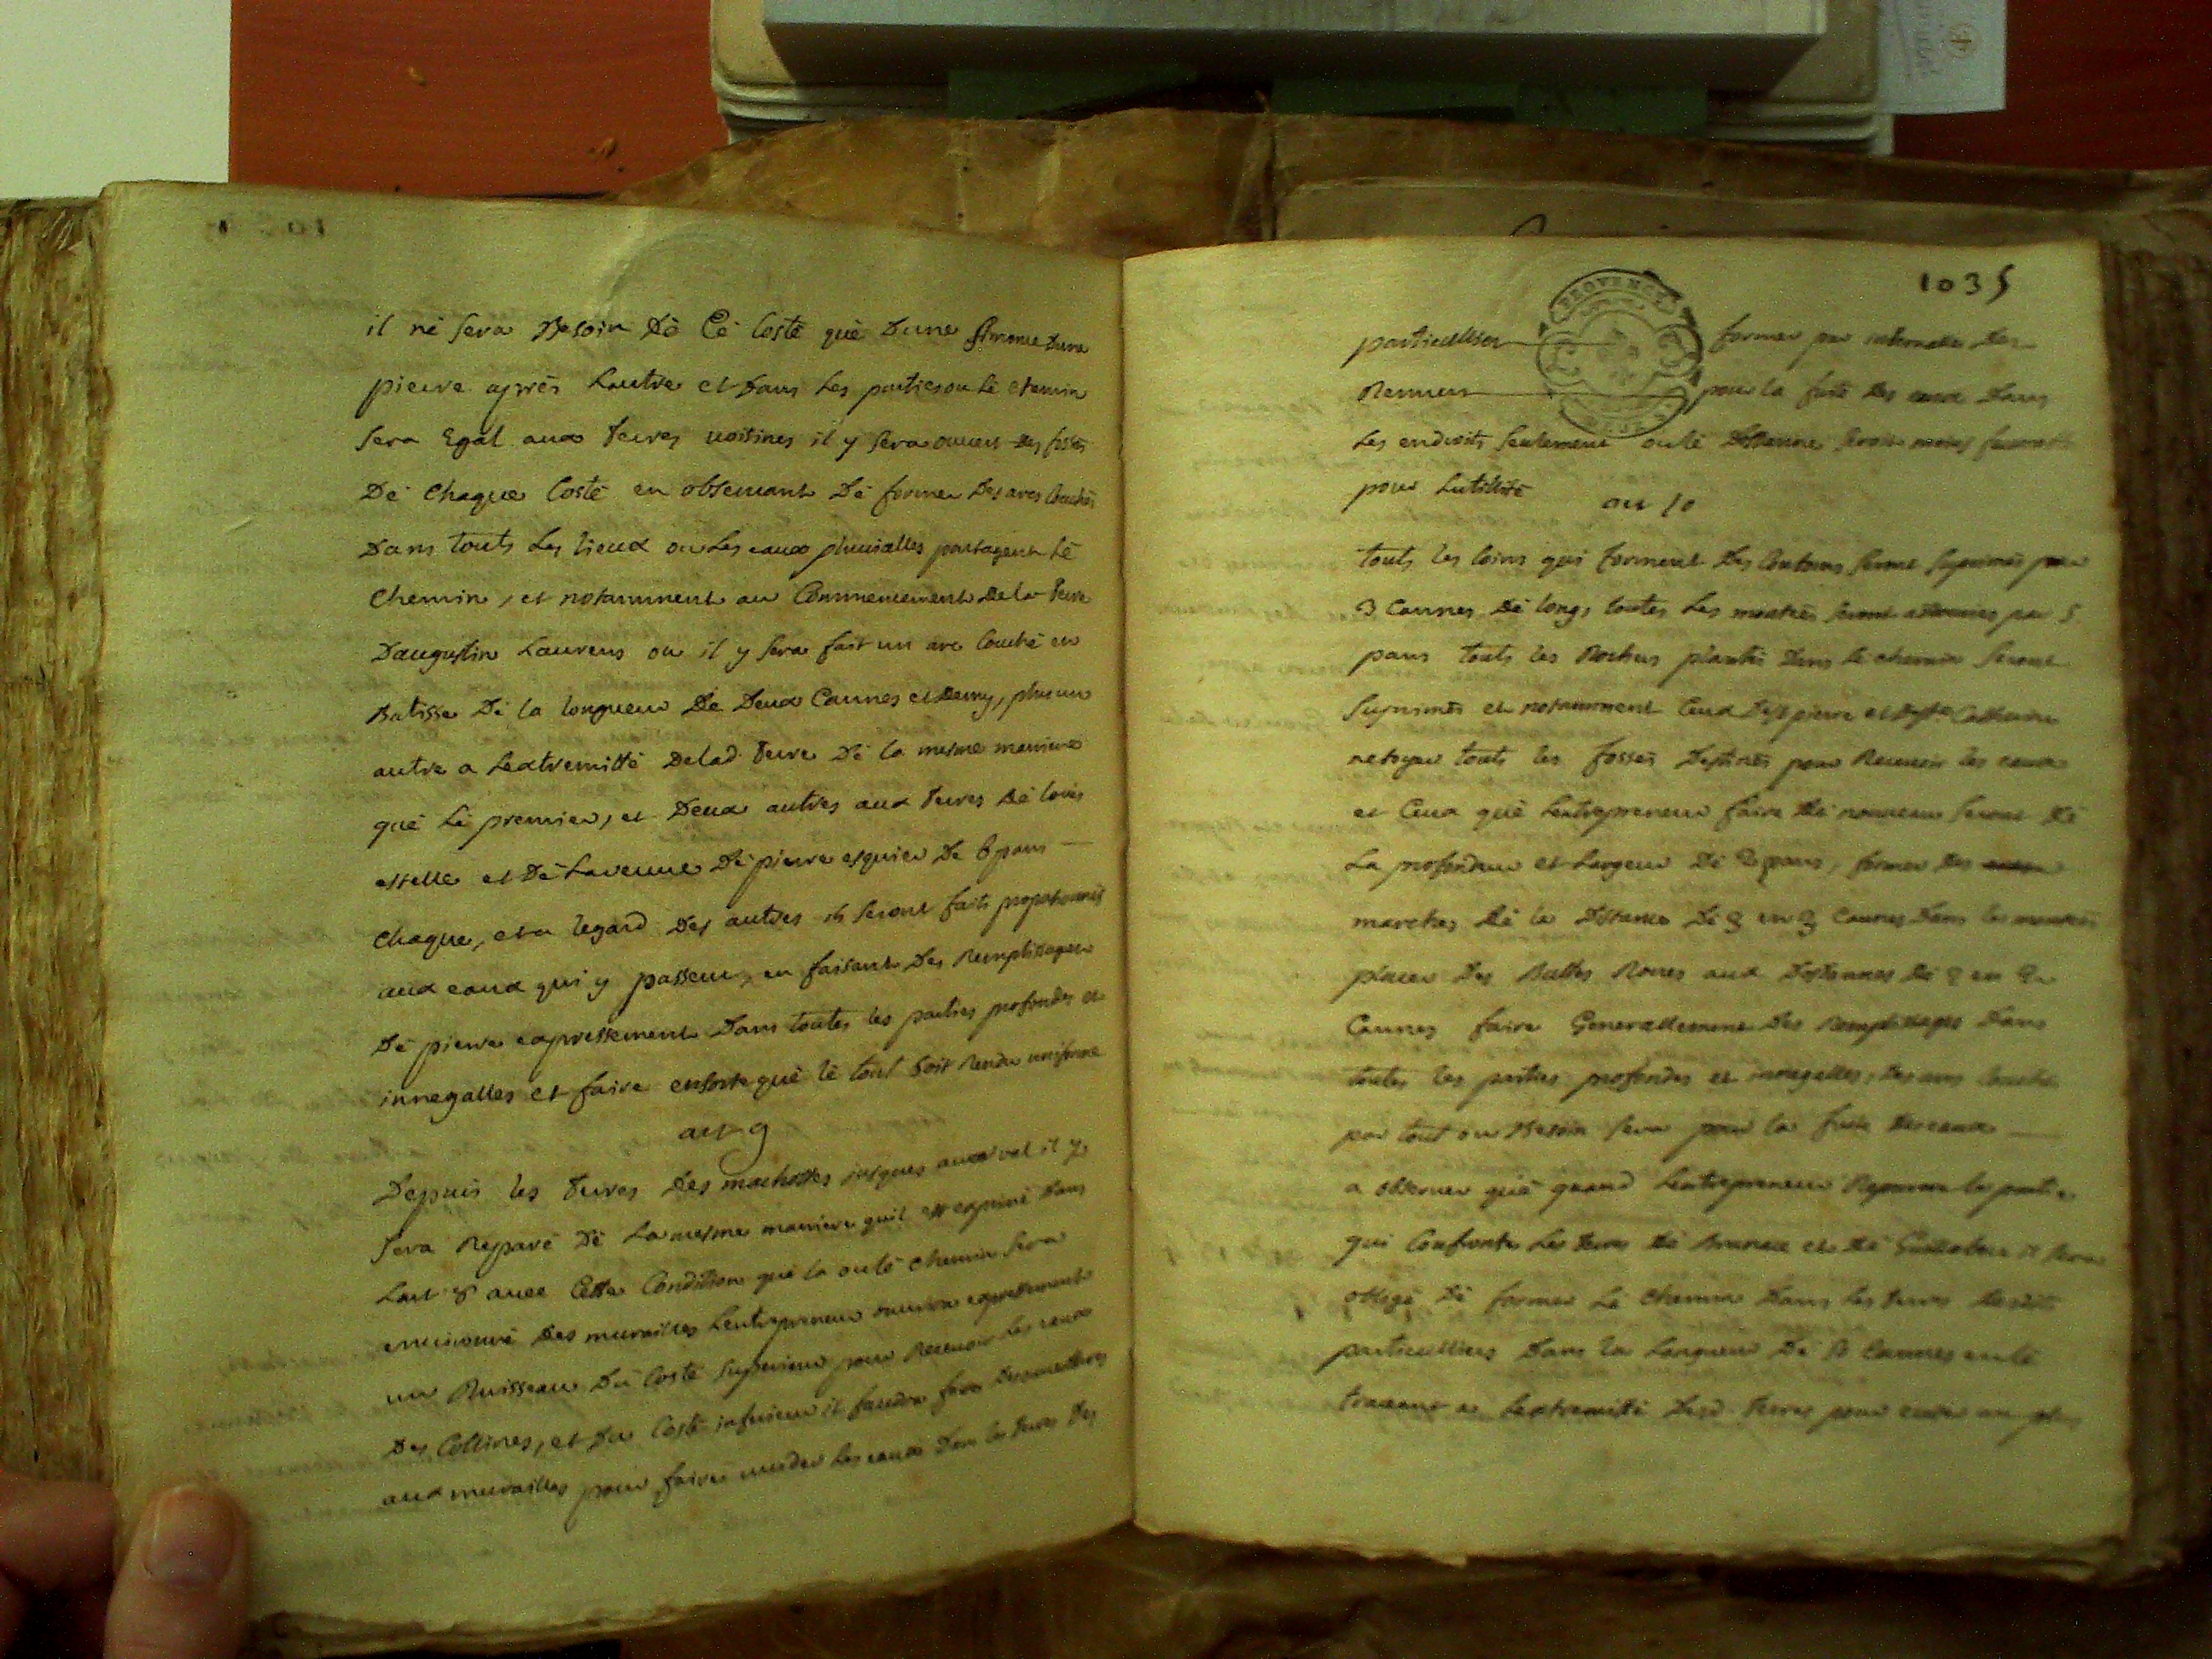 il né sera Besoin Dé Cé Costé qué Dune simme Dune
pierre aprés Lautre et Dans Les parties ou Lé chemin
sera Egal aux terres voisines il y sera ouvert des fossés
Dé chaque Costé en observant Dé former Des arcs Couchés
Dans touts Les lieux ou Les eaux pluvialles partagent lé
chemin, et notamment au Commencement De la terre
Daugustin Laurens ou il y sera fait un arc Couché en
Batisse Dé la longueur Dé Deux Cannes et Demy, plus un
autre a Lextremitté Delad. terre Dé la mesme maniere
qué Lé premier, et Deux autres aux terres Dé louis
estelle et Dé Laveuve Dé pierre esquier De 6 pans
chaque, et a legard Des autres ils seront faits proportionnés
aux eaux qui y passent, en faisant Des Remplissages
Dé pierre expressement Dans toutes les parties profondes et
innegalles et faire ensorte qué lé tout soit Rendu uniforme
art 9
Depuis les terres Des machottes jusques au val il y
sera Reparé Dé La mesme maniere quil est exprimé Dans
Lart 8 avec Cette Condition qué la ou lé chemin sera
environné Des murailles Lentrepreneur ouvrira expressement
un Ruisseau Du Costé superieur pour Recevoir Les eaux
Des Collines, et Du Costé inferieur il faudra faire
aux murailles pour faire vuider Les eaux Dans les terres Des
1035
PROVENCE
particulliers former par intervalle Des
pour la fuite Des eaux Dans
Les endroits seulement ou lé
pour Lutillité
art 10
touts les Coins qui forment Des Contours seront suprimés pour
3 Cannes Dé long, toutes Les montées seront par 5
pans touts les Rochers plantés Dans lé chemin seront
suprimés et notamment Ceux Dess pierre et
netoyer touts les fossés Destinés pour Recevoir les eaux
et Ceux qué Lentrepreneur faira Dé nouveau seront Dé
La profondeur et Largeur Dé 2 pans, former Des
marches Dé la Distance Dé 3 en 3 Cannes Dans les montées
placer Des Buttes Roues aux Distances Dé 2 en 2
Cannes faire Generallement Des Remplissages Dans
toutes les parties profondes et innegalles, Des arcs Couchés
par tout ou Besoin sera pour la fuite Des eaux
a observer qué quand Lentrepreneur Reparera la partie
qui Confronte Les terres Dé Brunet et Dé il sera
obligé Dé former Lé chemin Dans les terres Desdits
particulliers Dans la Longueur Dé Cannes en lé
traversant a Lextremitté Desd. terres pour